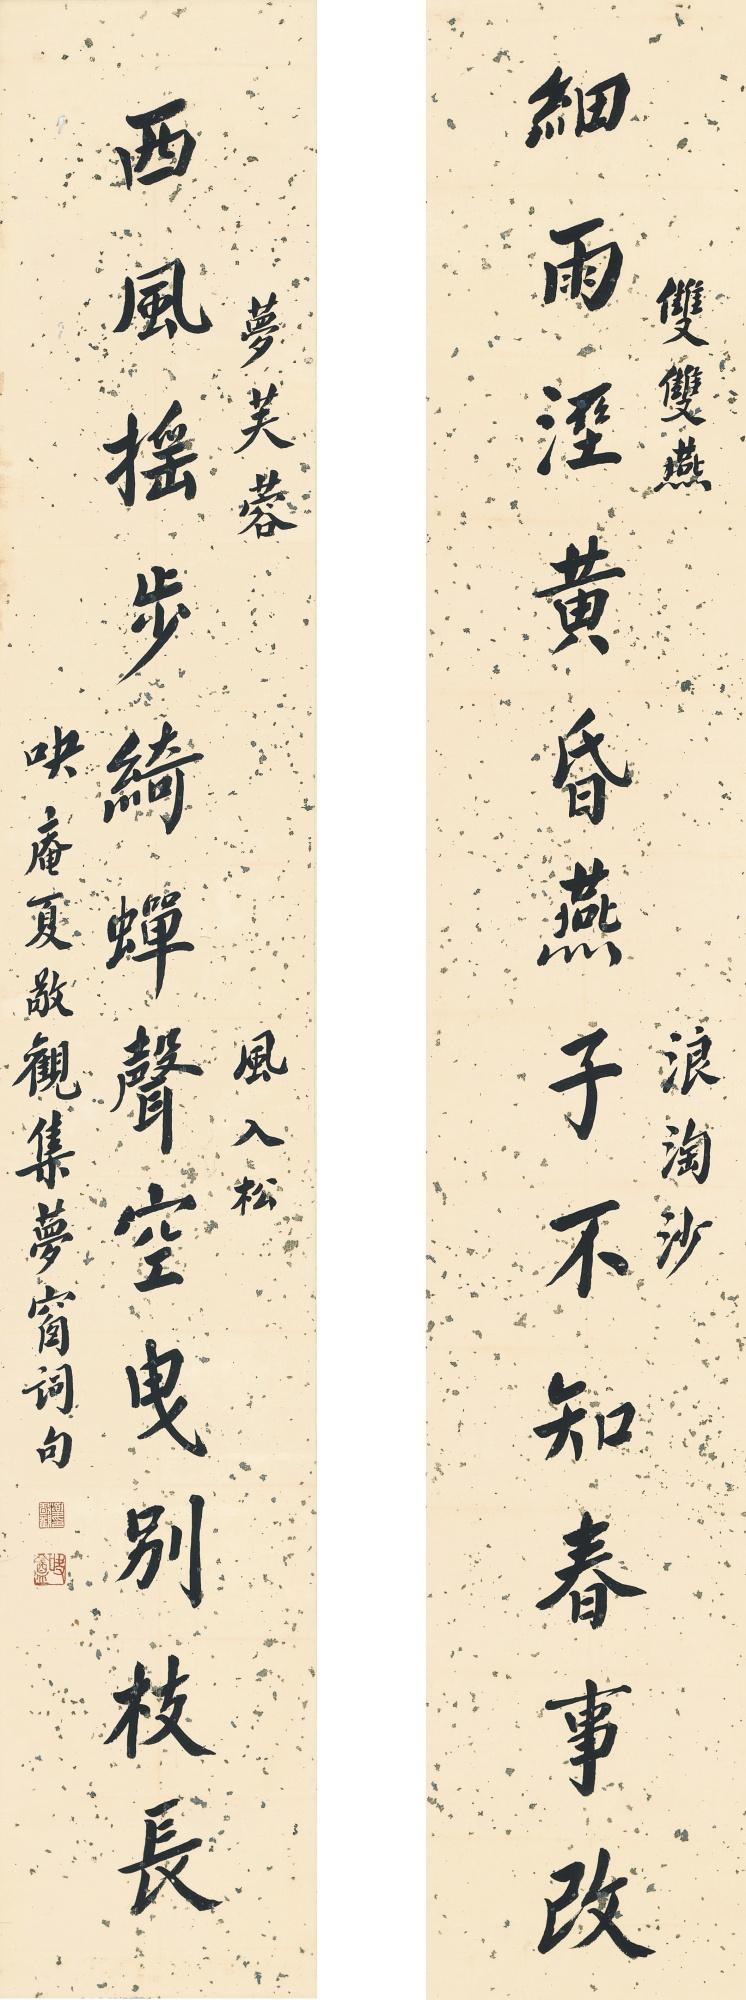 細雨溼黃昏燕子不知春事改
雙雙燕
浪淘沙
夢芙蓉
風入松
西風搖步綺蟬聲空曳別枝長
吷庵夏敬觀集夢窗詞句